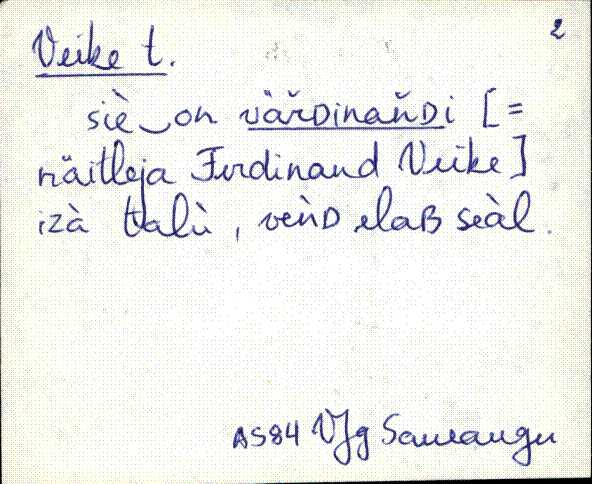 2
Veike t.
siè‿on vär̆Dinañ̆Di [=
näitleja Ferdinand Veike]
izà talù, veǹD elaB seàl.
AS84 VJg Saueaugu